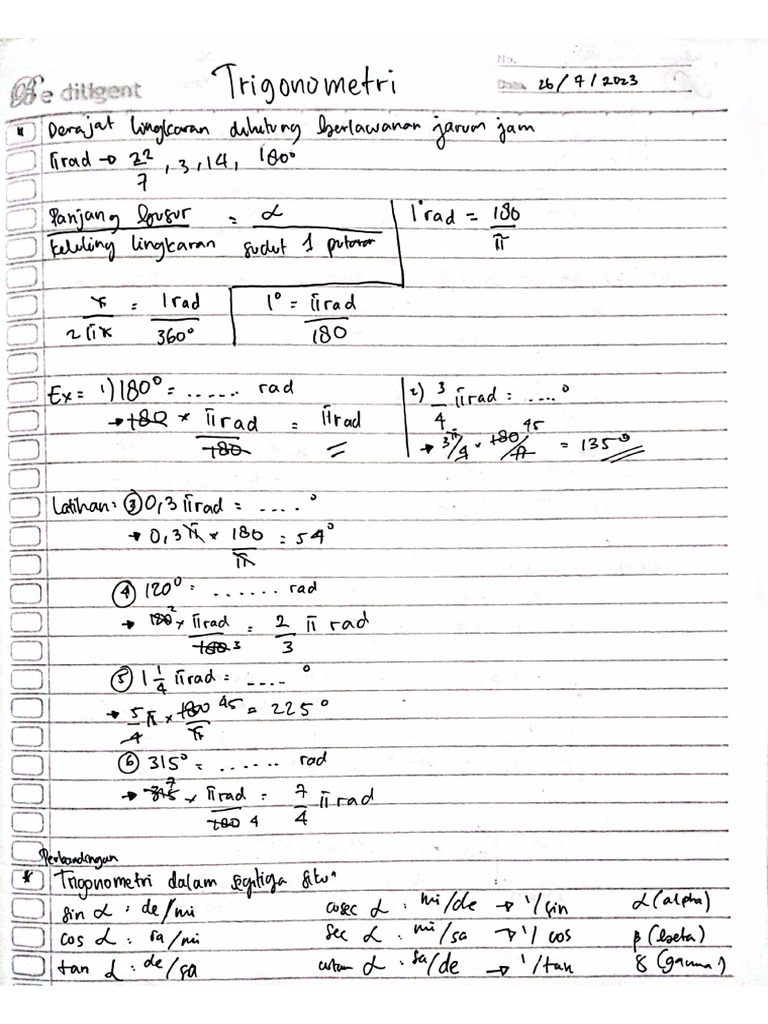 Be diligent
Trigonometri
No.
Date. 26/7/2023
* Derajat lingkaran dihitung berlawanan jarum jam
πrad → 22/7, 3,14, 180°
Panjang busur / keliling lingkaran = α / sudut 1 putaran
1 rad = 180/π
r/2πr = 1 rad/360°
1° = πrad/180
Ex = 1) 180° = ...... rad
→ 180 × πrad/180 = πrad
2) 3/4 πrad = ....°
→ 3π/4 × 180/π 45 = 135°
Latihan: ③ 0,3 πrad = ....°
→ 0,3π × 180/π = 54°
④ 120° = ...... rad
→ 2 × πrad/180 3 = 2/3 π rad
⑤ 1 1/4 πrad = ....°
→ 5/4 π × 180/π 45 = 225°
⑥ 315° = ...... rad
→ 315 7 × πrad/180 4 = 7/4 πrad
Perbandingan
* Trigonometri dalam segitiga
sin α : de/mi cosec α : mi/de → 1/sin α (alpha)
cos α : sa/mi sec α : mi/sa → 1/cos β (beta)
tan α : de/sa α : sa/de → 1/tan γ (gamma)